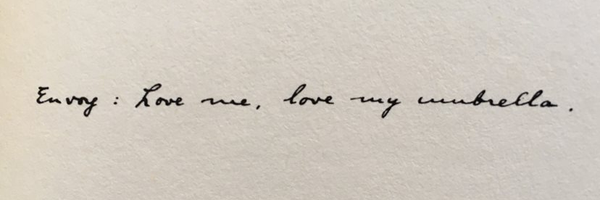 Envoy : Love me, love my umbrella.